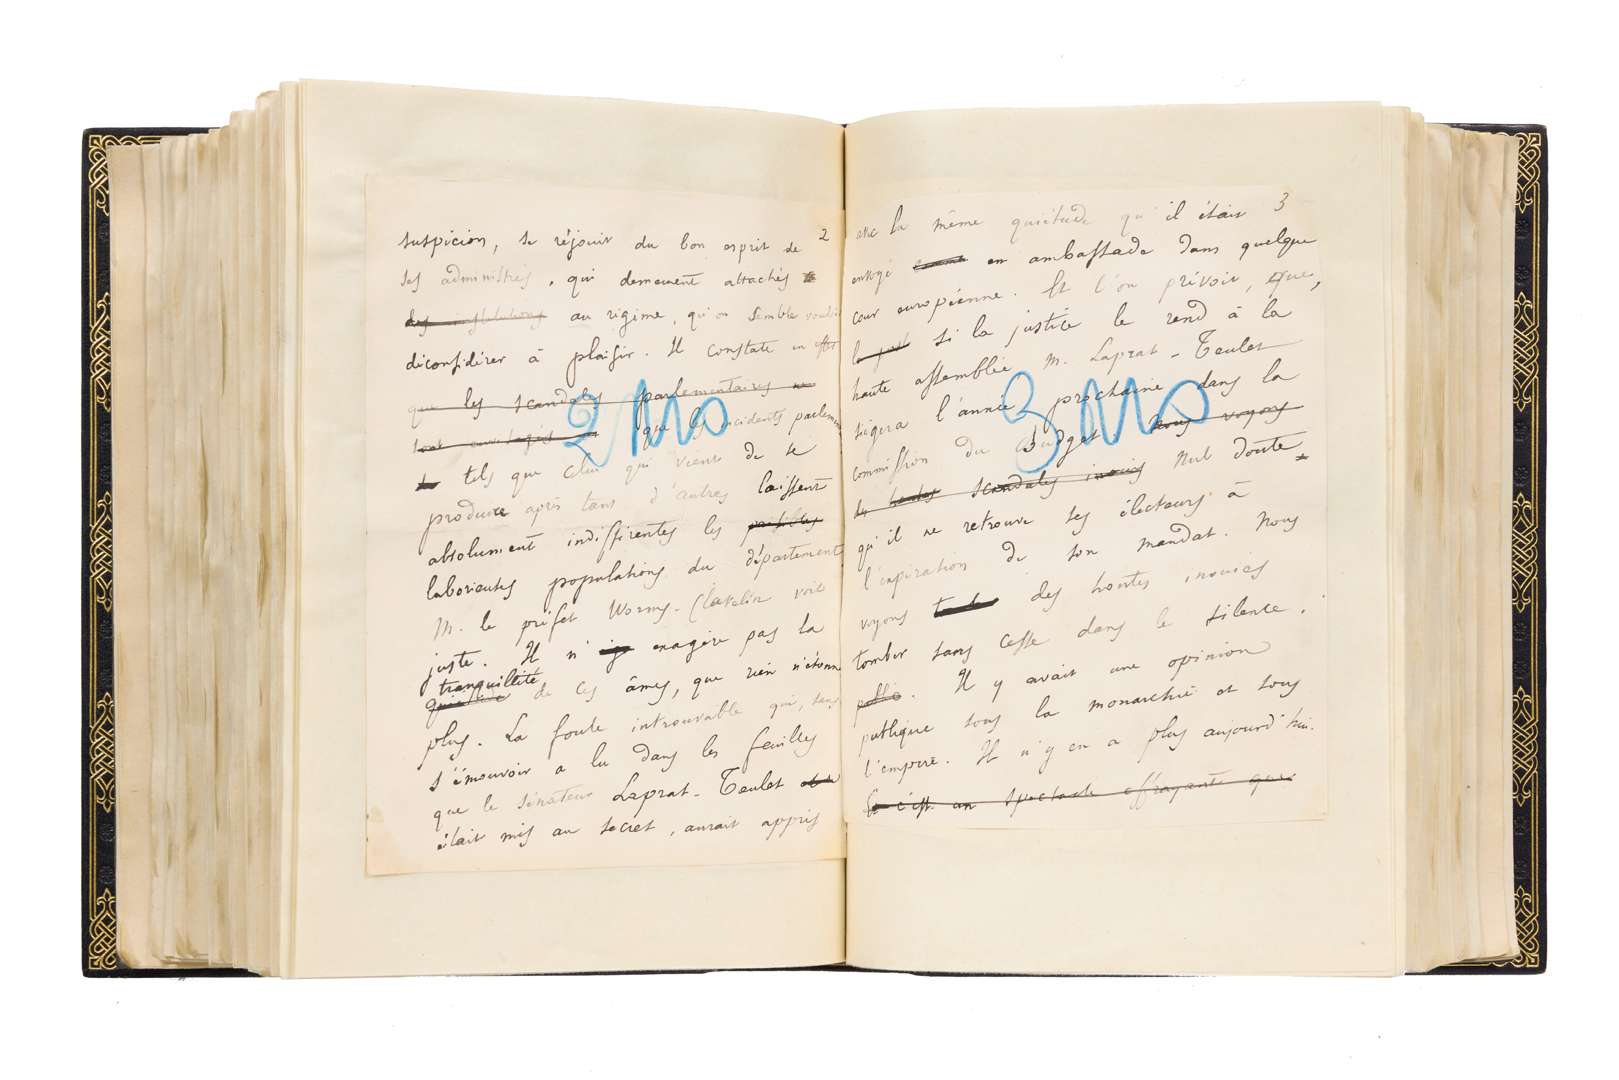 2
suspicion, se réjouir du bon esprit de
ses administrés, qui demeurent attachés
des institutions au régime, qu'on semble vouloir
déconsidérer à plaisir. Il constate en effet
que les scandales parlementaires ne
que les incidents parlemen
tels que celui qui vient de se
produire après tant d'autres laissent
absolument indifférentes les paisibles
laborieuses populations du département
M. le préfet Worms-Clavelin voit
juste. Il n' exagère pas la
tranquillité
quiétude de ces âmes, que rien n'étonne
plus. La foule introuvable qui, sans
s'émouvoir a lu dans les feuilles
que le sénateur Laprat-Teulet
était mis au secret, aurait appris
2
3
avec la même quiétude qu'il était
envoyé comme en ambassade dans quelque
cour européenne. Et l'on prévoit, que,
si la justice le rend à la
haute assemblée M. Laprat-Teulet
siégera l'année prochaine dans la
commission du budget. Nous voyons
scandales inouis Nul doute
qu'il ne retrouve ses électeurs à
l'expiration de son mandat. Nous
voyons des hontes inouies
tomber sans cesse dans le silence.
Il y avait une opinion
publique sous la monarchie et sous
l'empire. Il n'y en a plus aujourd'hui.
c'est un spectacle effrayant que
3